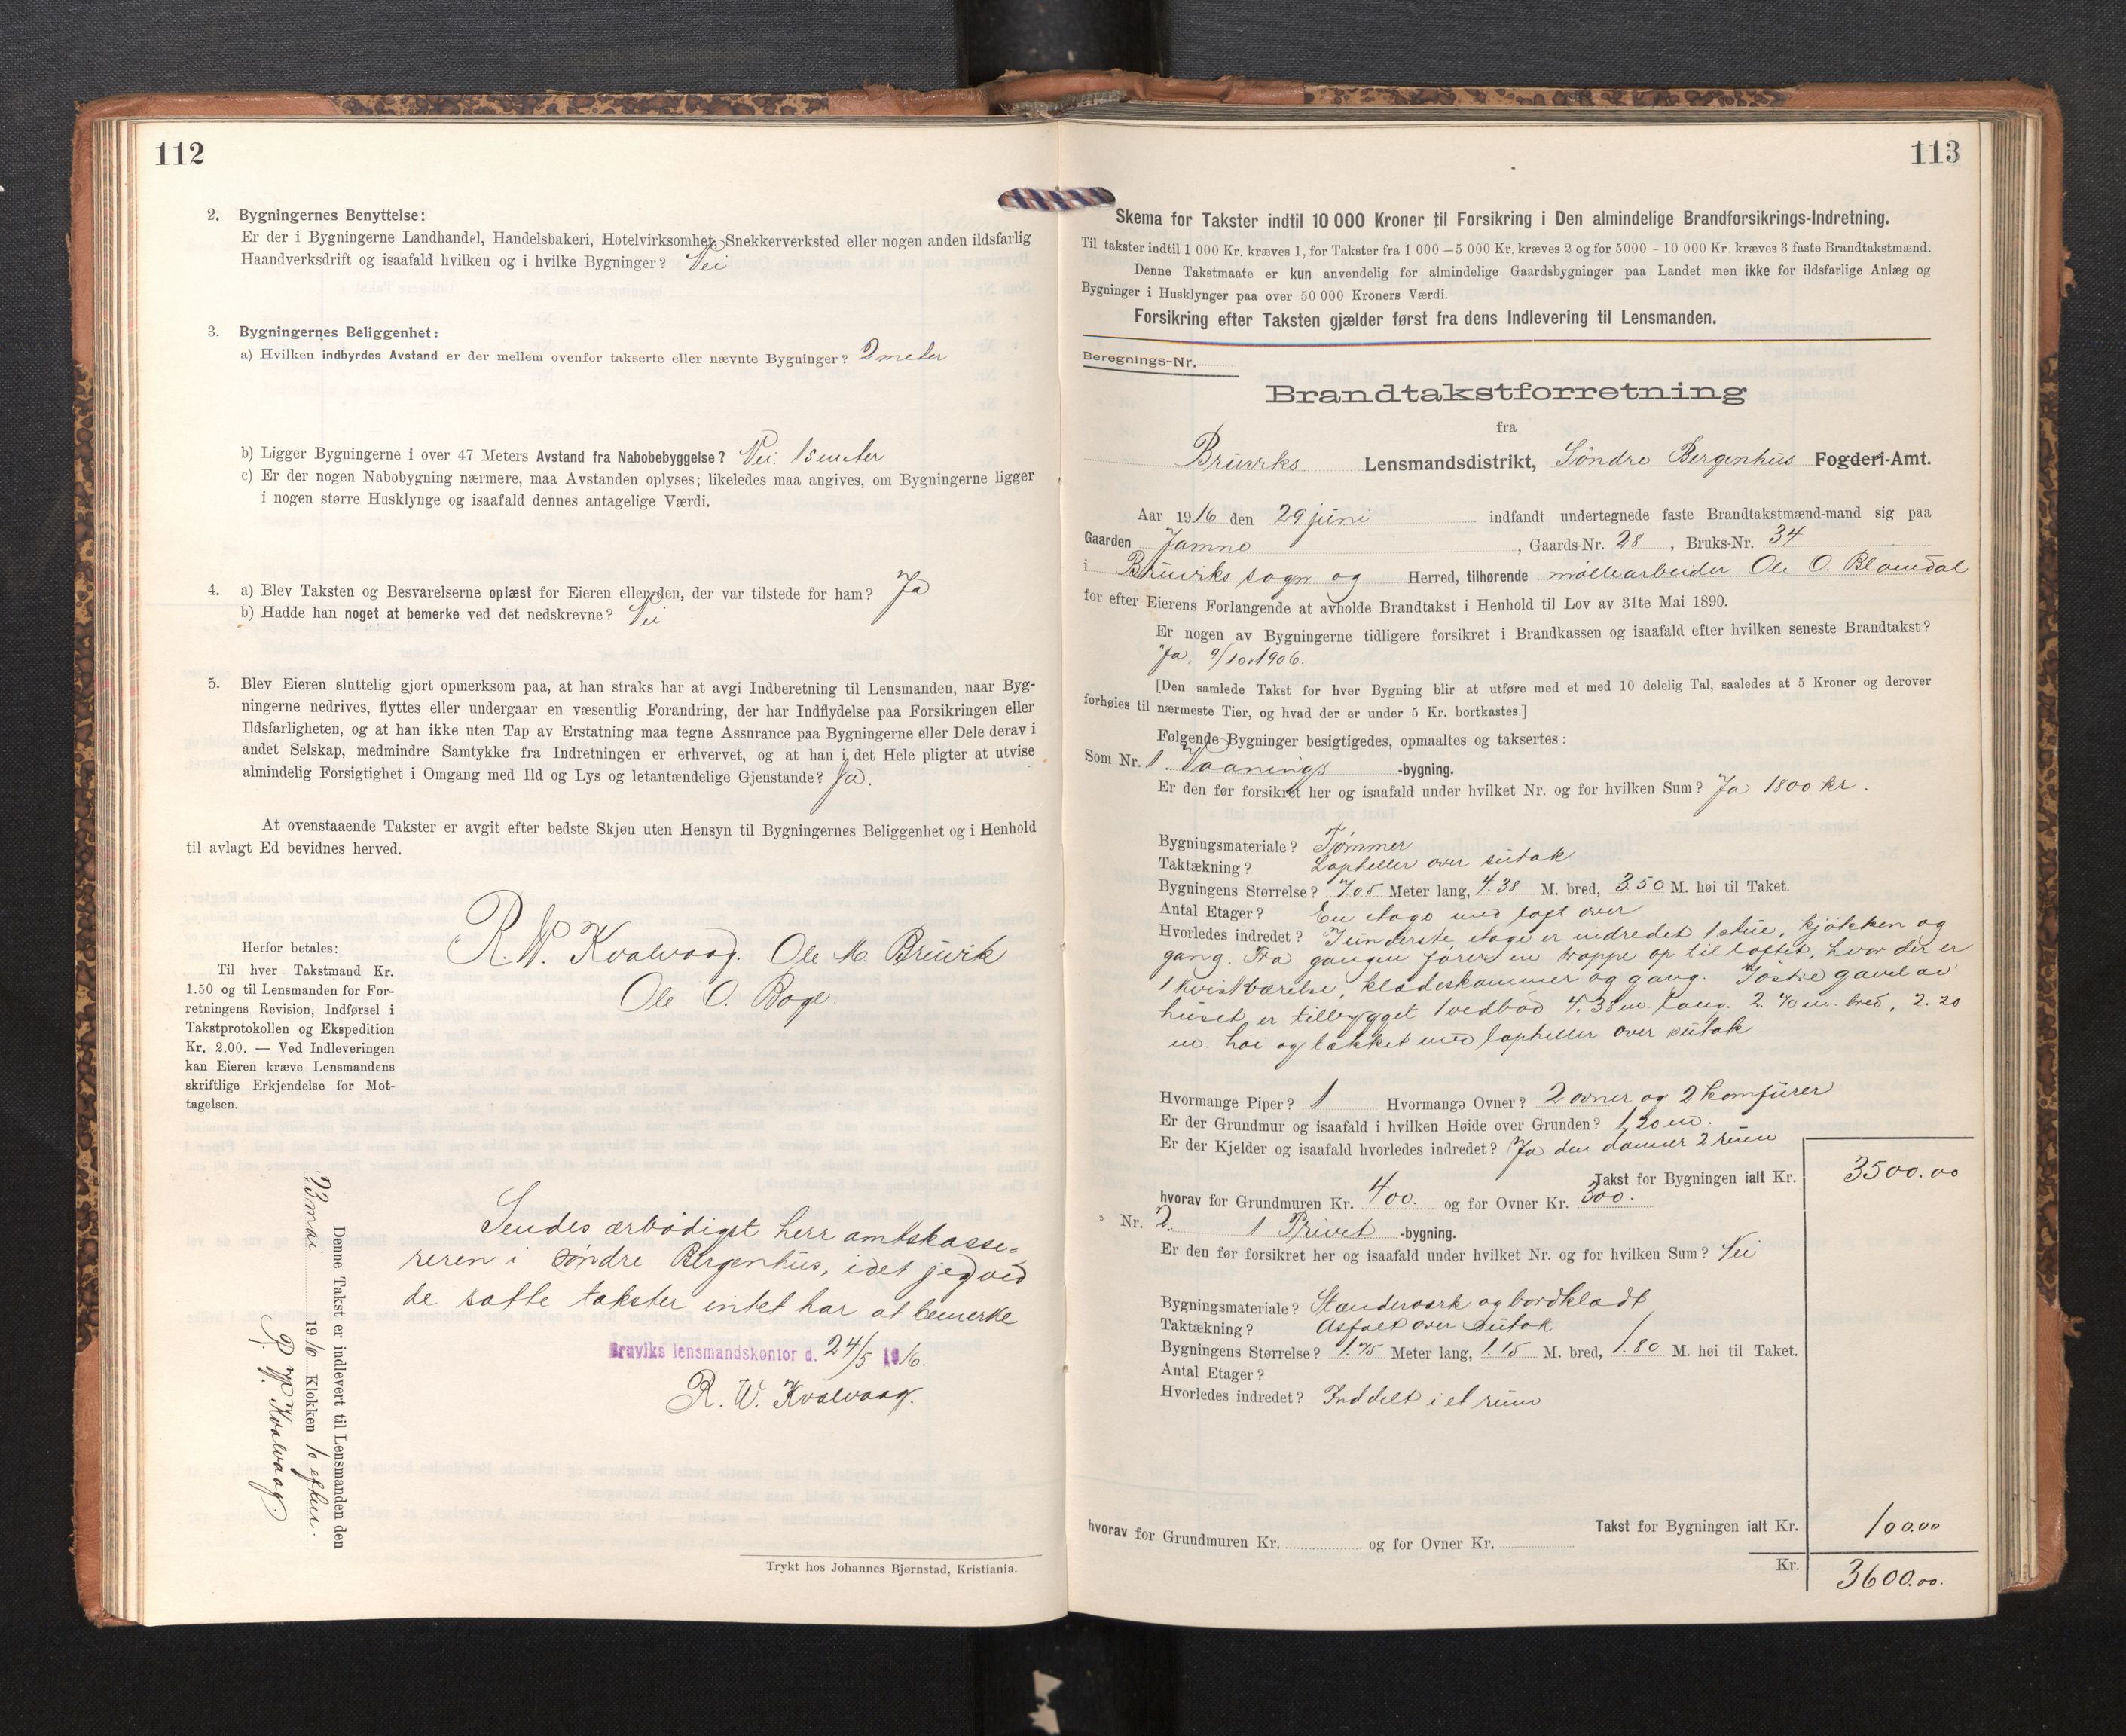 112
2. Bygningernes Benyttelse:
Er der i Bygningerne Landhandel, Handelsbakeri, Hotelvirksomhet, Snekkerverksted eller nogen anden ildsfarlig
Haandverksdrift og isaafald hvilken og i hvilke Bygninger? Nei
3. Bygningernes Beliggenhet:
a) Hvilken indbyrdes Avstand er der mellem ovenfor takserte eller nævnte Bygninger? 2 meter
b) Ligger Bygningerne i over 47 Meters Avstand fra Nabobebyggelse? Nei. 15 meter
c) Er der nogen Nabobygning nærmere, maa Avstanden oplyses; likeledes maa angives, om Bygningerne ligger
i nogen større Husklynge og isaafald dennes antagelige Værdi.
4. a) Blev Taksten og Besvarelserne oplæst for Eieren eller den, der var tilstede for ham? Ja
b) Hadde han noget at bemerke ved det nedskrevne? Nei
5. Blev Eieren sluttelig gjort opmerksom paa, at han straks har at avgi Indberetning til Lensmanden, naar Byg-
ningerne nedrives, flyttes eller undergaar en væsentlig Forandring, der har Indflydelse paa Forsikringen eller
Ildsfarligheten, og at han ikke uten Tap av Erstatning maa tegne Assurance paa Bygningerne eller Dele derav i
andet Selskap, medmindre Samtykke fra Indretningen er erhvervet, og at han i det Hele pligter at utvise
almindelig Forsigtighet i Omgang med Ild og Lys og letantændelige Gjenstande? Ja.
At ovenstaaende Takster er avgit efter bedste Skjøn uten Hensyn til Bygningernes Beliggenhet og i Henhold
til avlagt Ed bevidnes herved.
R. W. Kvalvaag. Ole M. Bruvik
Ole O. Boge
Herfor betales:
Til hver Takstmand Kr.
1.50 og til Lensmanden for For-
retningens Revision, Indførsel i
Takstprotokollen og Ekspedition
Kr. 2.00. — Ved Indleveringen
kan Eieren kræve Lensmandens
skriftlige Erkjendelse for Mot-
tagelsen.
Denne Takst er indlevert til Lensmanden den
23 mai 1916 Klokken 10 efter.
R. W. Kvalvaag.
Sendes ærbødigst herr amtskasse-
reren i Søndre Bergenhus, idet jeg ved
de satte takster intet har at bemerke
Bruviks lensmandskontor d. 24/5 1916.
R. W. Kvalvaag.
Trykt hos Johannes Bjørnstad, Kristiania.
113
Skema for Takster indtil 10 000 Kroner til Forsikring i Den almindelige Brandforsikrings-Indretning.
Til takster indtil 1 000 Kr. kræves 1, for Takster fra 1 000 — 5 000 Kr. kræves 2 og for 5000 - 10 000 Kr. kræves 3 faste Brandtakstmænd.
Denne Takstmaate er kun anvendelig for almindelige Gaardsbygninger paa Landet men ikke for ildsfarlige Anlæg og
Bygninger i Husklynger paa over 50 000 Kroners Værdi.
Forsikring efter Taksten gjælder først fra dens Indlevering til Lensmanden.
Beregnings-Nr.
Brandtakstforretning
fra
Bruviks Lensmandsdistrikt, Søndre Bergenhus Fogderi-Amt.
Aar 1916 den 29 juni indfandt undertegnede faste Brandtakstmænd-mand sig paa
Gaarden Jamne, Gaards-Nr. 28, Bruks-Nr. 34
i Bruviks sogn og Herred, tilhørende møllearbeider Ole O. Blomdal
for efter Eierens Forlangende at avholde Brandtakst i Henhold til Lov av 31te Mai 1890.
Er nogen av Bygningerne tidligere forsikret i Brandkassen og isaafald efter hvilken seneste Brandtakst?
Ja, 9/10 1906.
[Den samlede Takst for hver Bygning blir at utføre med et med 10 delelig Tal, saaledes at 5 Kroner og derover
forhøies til nærmeste Tier, og hvad der er under 5 Kr. bortkastes.]
Følgende Bygninger besigtigedes, opmaaltes og taksertes:
Som Nr. 1. Vaanings -bygning.
Er den før forsikret her og isaafald under hvilket Nr. og for hvilken Sum? Ja 1800 kr.
Bygningsmateriale? Tømmer
Taktækning? Lapheller over sutak
Bygningens Størrelse? 7.05 Meter lang, 4.38 M. bred, 3.50 M. høi til Taket.
Antal Etager? En etage med loft over
Hvorledes indredet? I underste etage er indredet 1 stue, kjøkken og
gang. Fra gangen fører en trappe op til loftet, hvor der er
1 kvistværelse, klædeskammer og gang. I østre gavel av
huset er tilbygget 1 vedbod 4.38 m. lang. 2.70 m. bred, 2.20
m. høi og tækket med lapheller over sutak
Hvormange Piper? 1 Hvormange Ovner? 2 ovner og 2 komfurer
Er der Grundmur og isaafald i hvilken Høide over Grunden? 1,20 m.
Er der Kjelder og isaafald hvorledes indredet? Ja den danner 2 rum
Takst for Bygningen ialt Kr. 3500.00
hvorav for Grundmuren Kr. 400. og for Ovner Kr. 300.
Nr. 2. 1 Privet -bygning.
Er den før forsikret her og isaafald under hvilket Nr. og for hvilken Sum? Nei
Bygningsmateriale? Stænderverk og bordklædt
Taktækning? Asfalt over sutak
Bygningens Størrelse? 1.75 Meter lang, 1.15 M. bred, 1.80 M. høi til Taket.
Antal Etager?
Hvorledes indredet? Inddelt i et rum
Takst for Bygningen ialt Kr. 100.00
hvorav for Grundmuren Kr. og for Ovner Kr.
Kr. 3600.00.